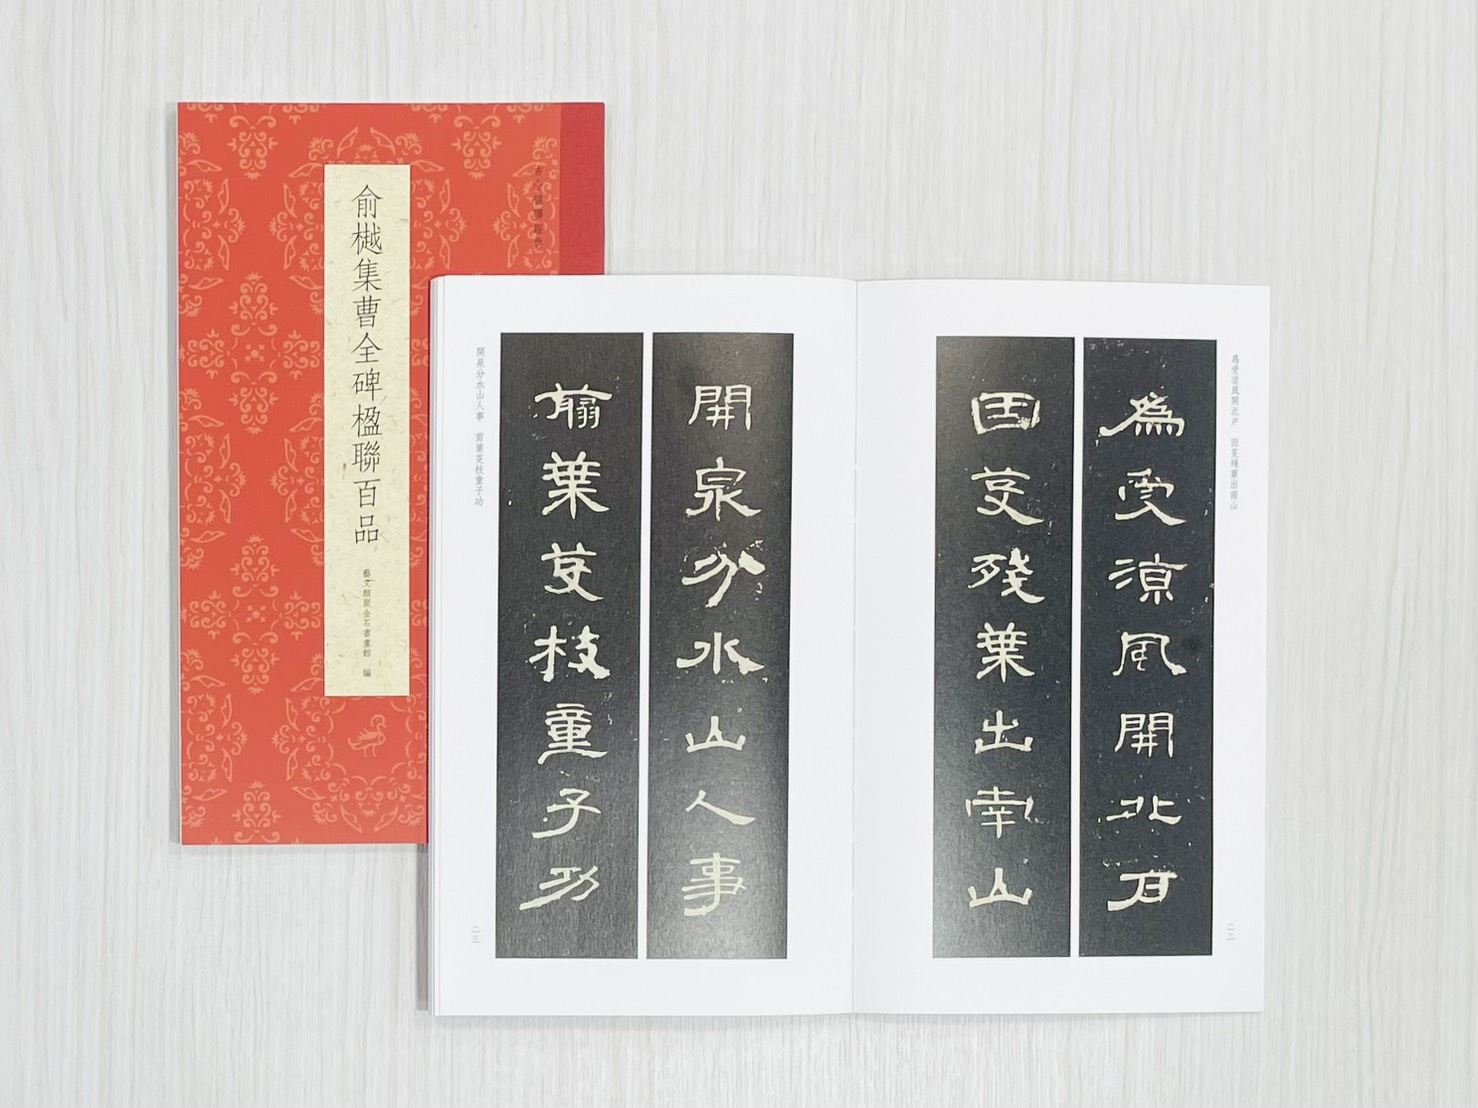 俞樾集曹全碑楹聯百品
藝文類聚金石書畫館 編
爲受凉風開北戶 因芟殘葉出南山
爲受凉風開北戶
因芟殘葉出南山
二二
開泉分水山人事
翦葉芟枝童子功
開泉分水山人事 剪葉芟枝童子功
二三